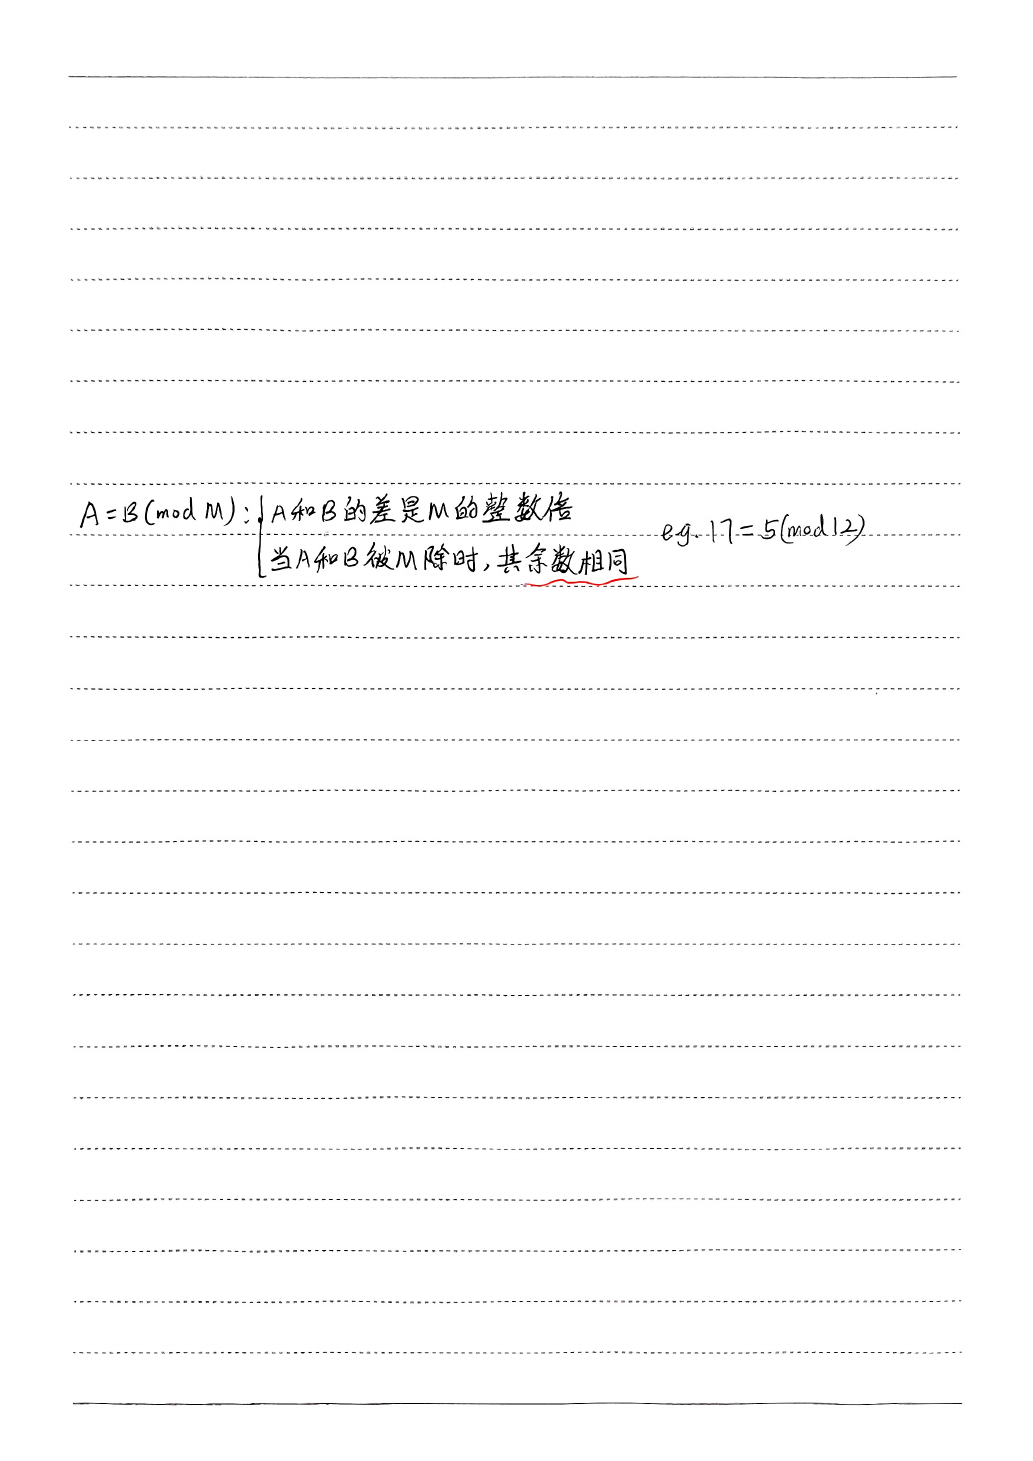 A=B(mod M): A和B的差是M的整数倍
当A和B被M除时,其余数相同
e.g. 17=5(mod12)